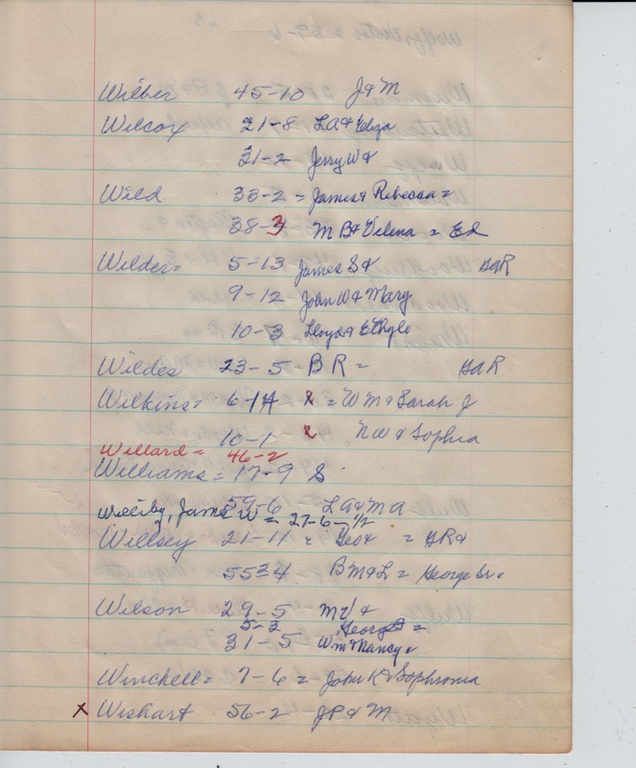 Wilber 45-10 J & M
Wilcox 21-8 LA & Eliza
31-2 Jerry W &
Wild 33-2 = James & Rebecca =
38-3 M B & Velena = Ed
Wilder = 5-13 James S & GAR
9-12 John W & Mary
10-3 Lloyd &
Wildes 23-5 B R = GAR
Wilkins = 6-1A = Wm & Sarah J
10-1 N W & Sophia
Willard = 46-2
Williams = 17-9 S
59-6 LA & M A
James W = 27-6 - 1/2
Willsey 21-11 = Geo & = &
55-4 B M & L = George Sr.
Wilson 29-5 M V &
5-3 George =
31-5 Wm & Nancy &
Winchell = 7-6 = John K & Sophronia
x Wishart 56-2 J P & M